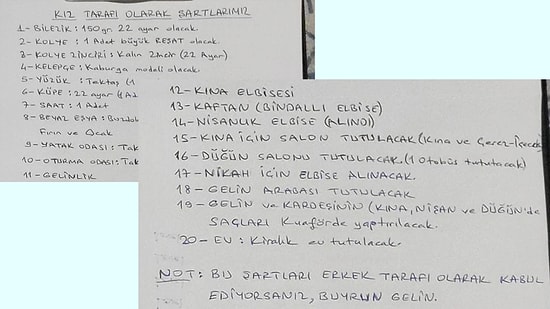 KIZ TARAFI OLARAK ŞARTLARIMIZ
1- BİLEZİK: 150 gr. 22 ayar olacak.
2- KOLYE: 1 Adet büyük REŞAT olacak.
3- KOLYE ZİNCİRİ: Kalın Zincir (22 Ayar)
4- KELEPÇE: Kaburga modeli olacak.
5- YÜZÜK: Tektaş (1
6- KÜPE: 22 ayar (1 Ad
7- SAAT: 1 Adet
8- BEYAZ EŞYA: Buzdol
Fırın ve Ocak
9- YATAK ODASI: Tak
10- OTURMA ODASI: Tak
11- GELİNLİK
12- KINA ELBİSESİ
13- KAFTAN (BİNDALLI ELBİSE)
14- NİŞANLIK ELBİSE (ALINDI)
15- KINA İÇİN SALON TUTULACAK (Kına ve Çerez-İçecek)
16- DÜĞÜN SALONU TUTULACAK. (1 Otobüs tutulacak)
17- NİKAH İÇİN ELBİSE ALINACAK.
18- GELİN ARABASI TUTULACAK
19- GELİN ve KARDEŞİNİN (KINA, NİŞAN ve DÜĞÜN'de
SAÇLARI Kuaförde yaptırılacak.
20- EV: Kiralık ev tutulacak.
NOT: BU ŞARTLARI ERKEK TARAFI OLARAK KABUL
EDİYORSANIZ, BUYRUN GELİN.